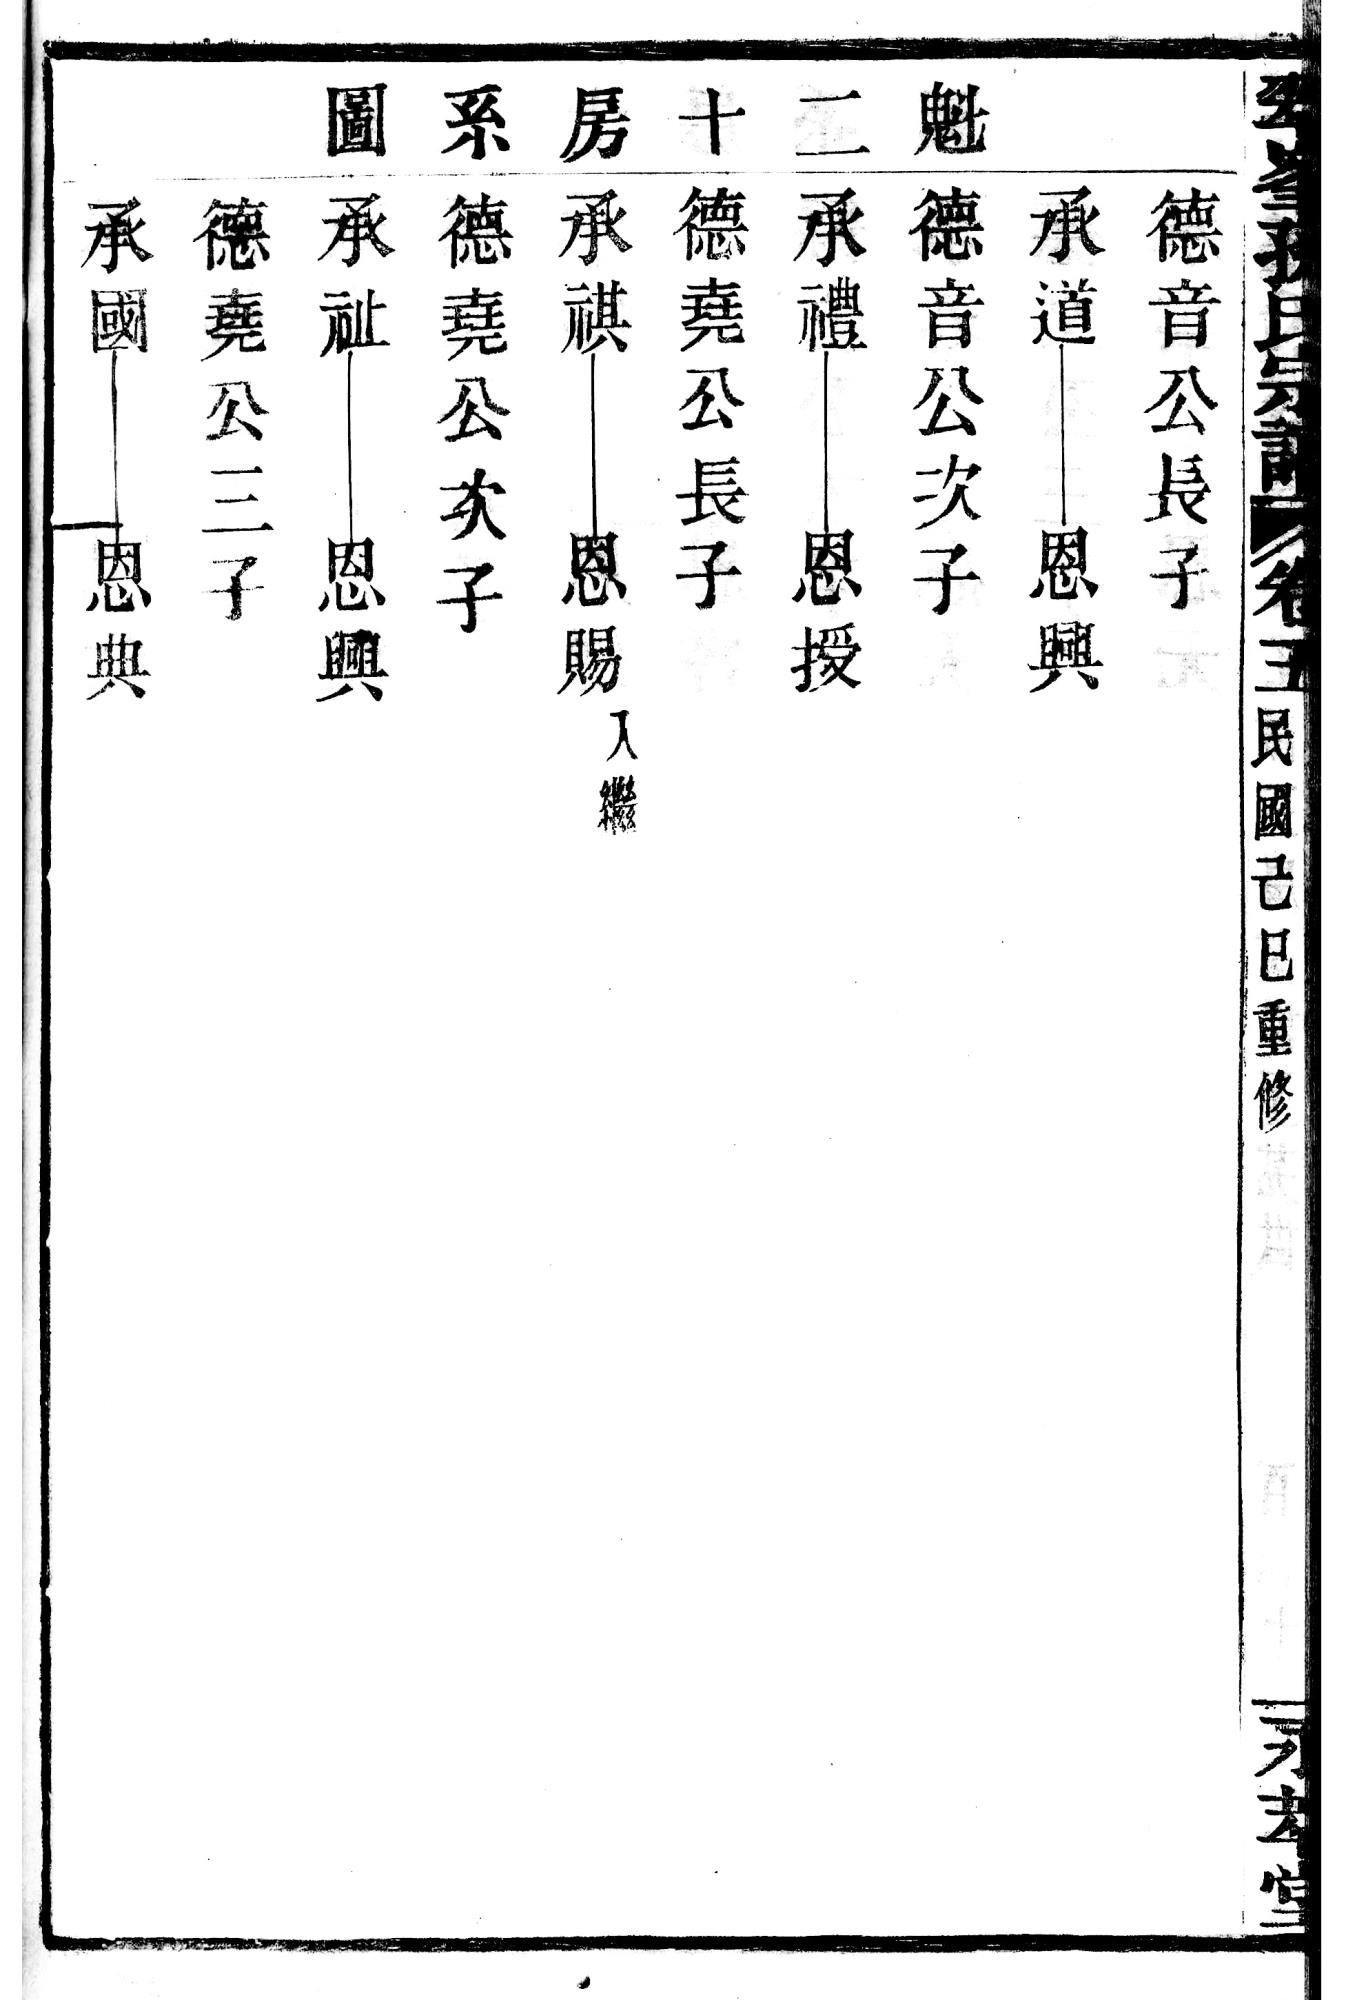 孫氏宗譜 卷五 民國己巳重修 堂
魁二十房系圖
德音公長子
承道 恩興
德音公次子
承禮 恩授
德堯公長子
承祺 恩賜 入繼
德堯公次子
承祉 恩興
德堯公三子
承國 恩典